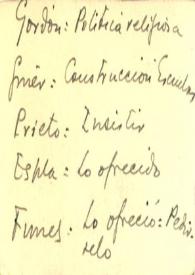 Gordón: Política religiosa
Giner: Construcción Escuelas
Prieto: Insistir
Espla: Lo ofrecido
Funes: Lo ofreció: Pedir-
selo